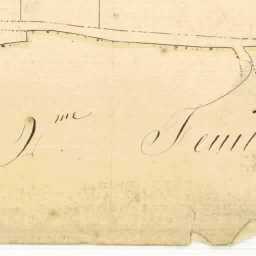 2.me Feuil